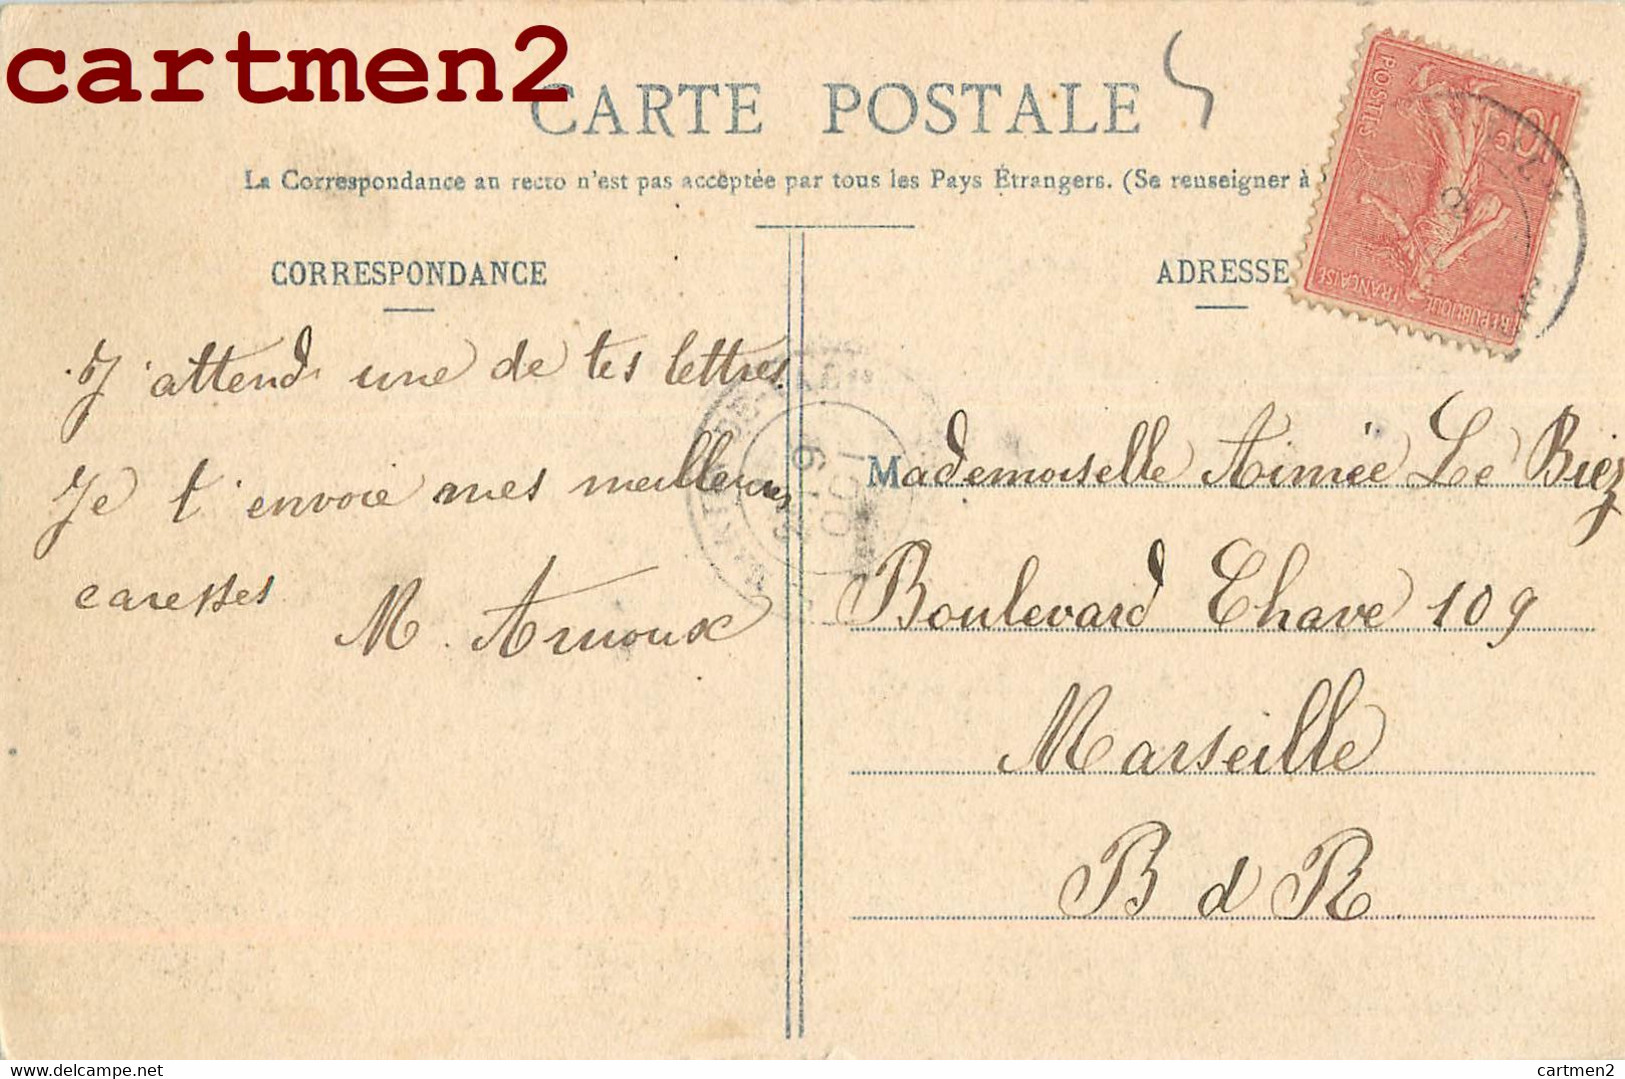 cartmen2
CARTE POSTALE
La Correspondance au recto n'est pas acceptée par tous les Pays Étrangers. (Se renseigner à
CORRESPONDANCE
J'attend une de tes lettres
Je t'envoie mes meilleures
caresses
M. Arnoux
ADRESSE
10c
POSTES
REPUBLIQUE FRANÇAISE
Mademoiselle Aimée Le Biez
Boulevard Chave 109
Marseille
B d R
delcampe.net
cartmen2